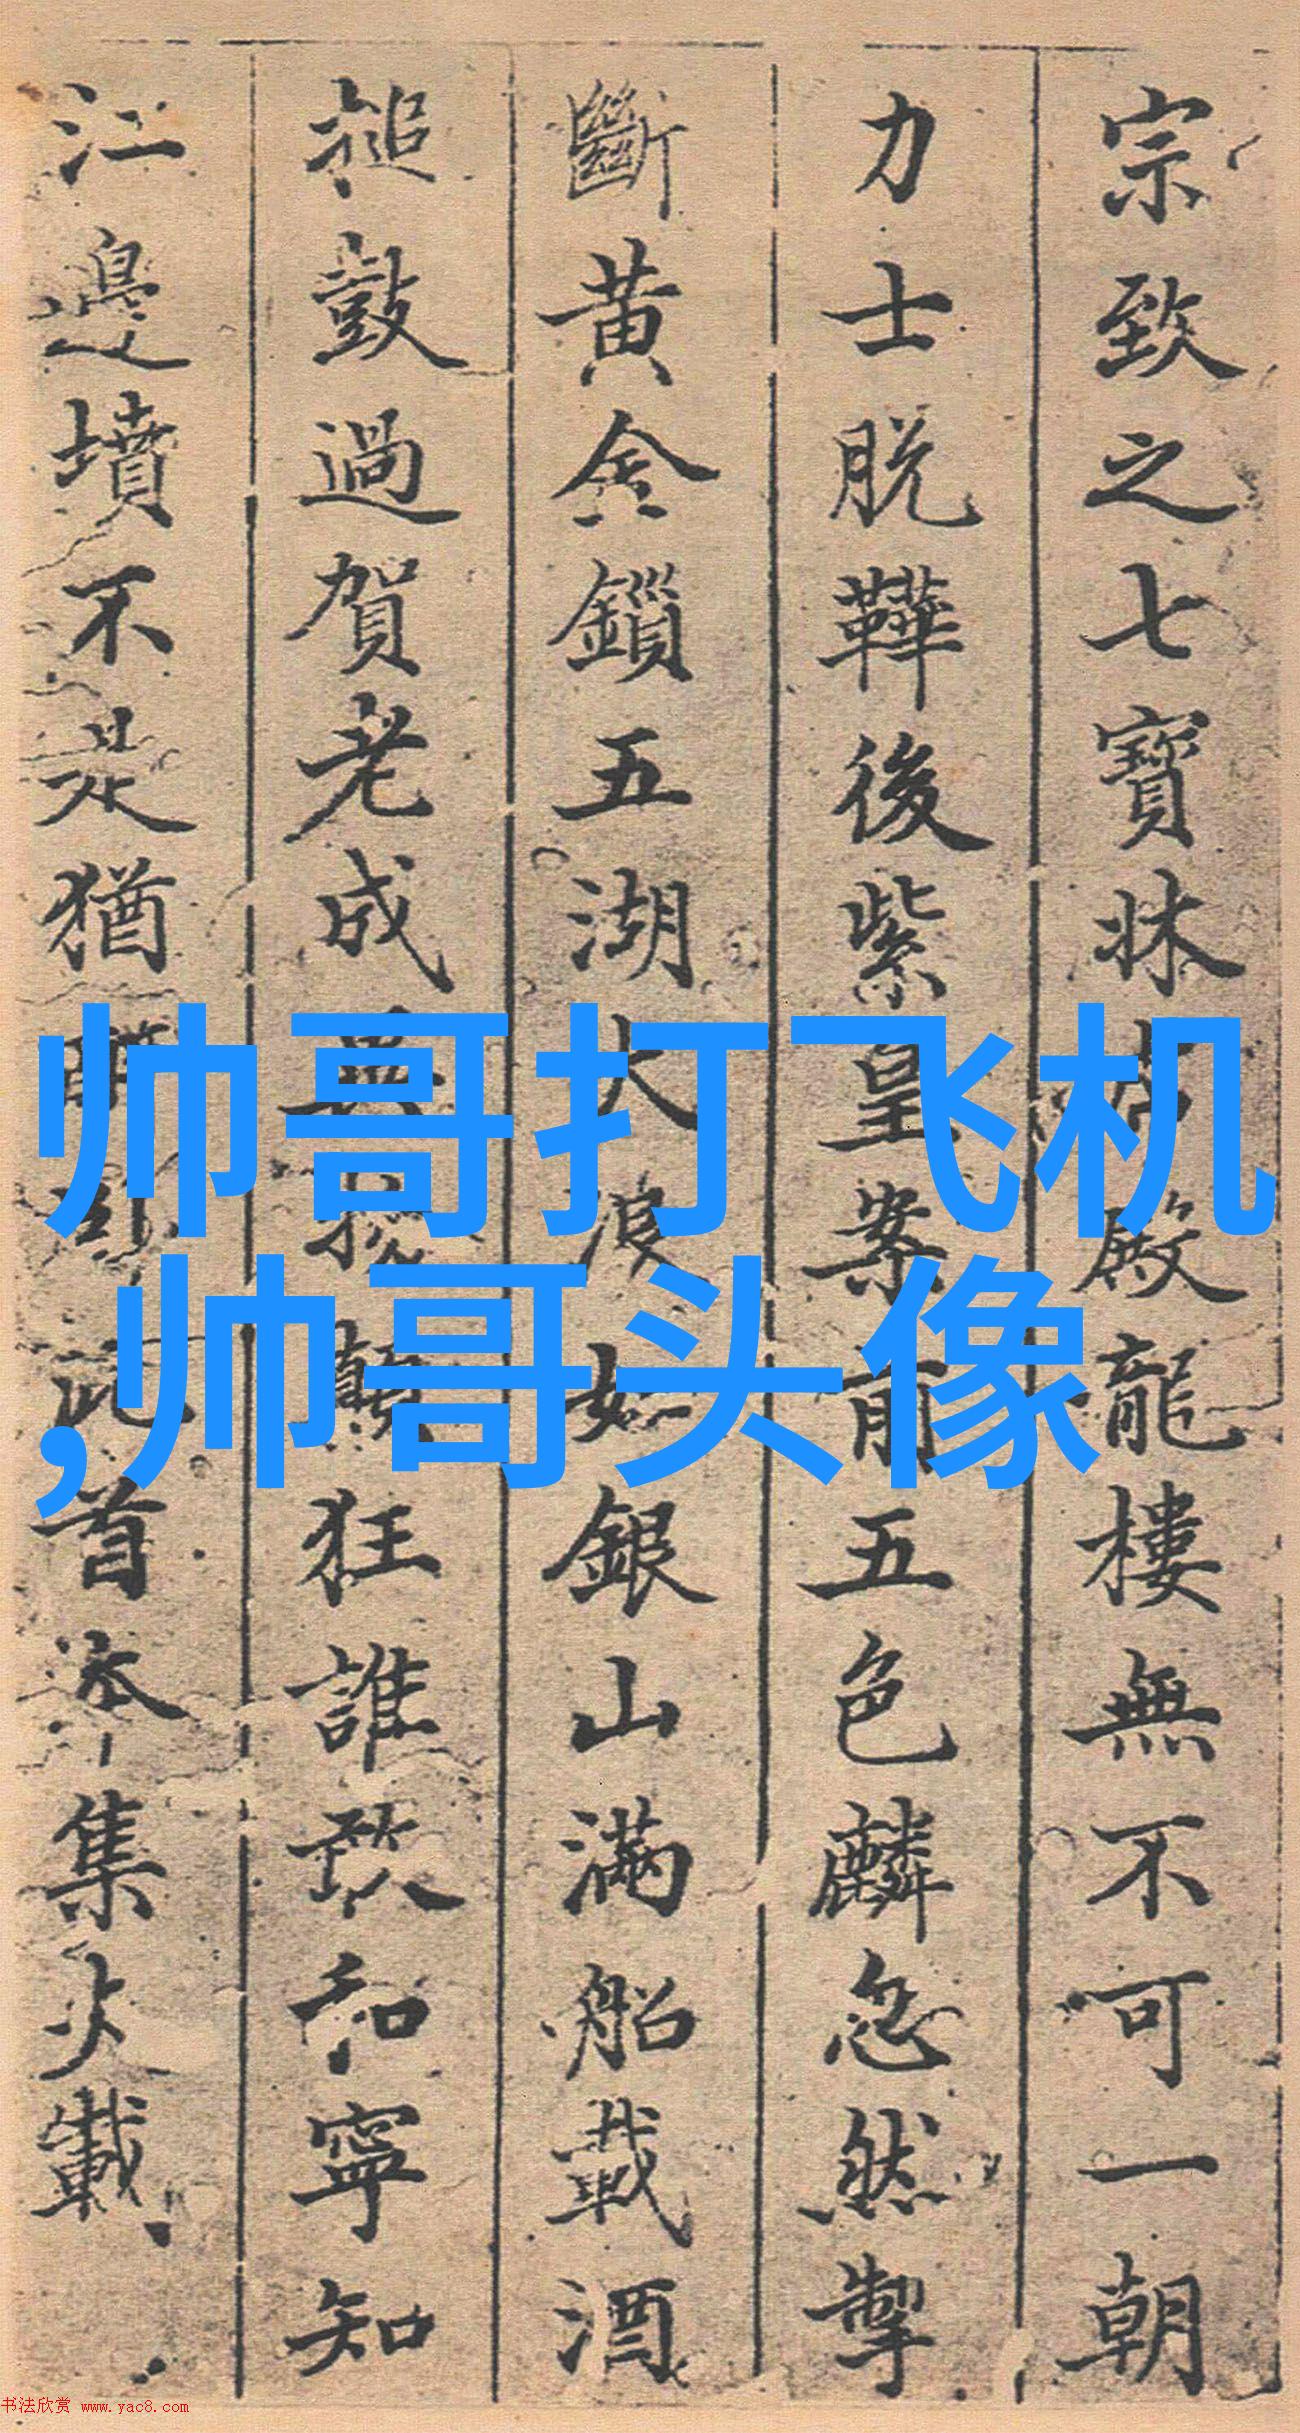 宗致之七寶牀 殿龍樓無不可一朝
力士脱鞾後紫皇案前五色麟忽然掣
斷黃金鎖五湖大浪如銀山滿船載酒
搥鼓過賀老成異物顛狂誰敢和寧知
江邊墳不是猶 此首本集失載
帅哥打飞机
,帅哥头像
书法欣赏 www.yac8.com